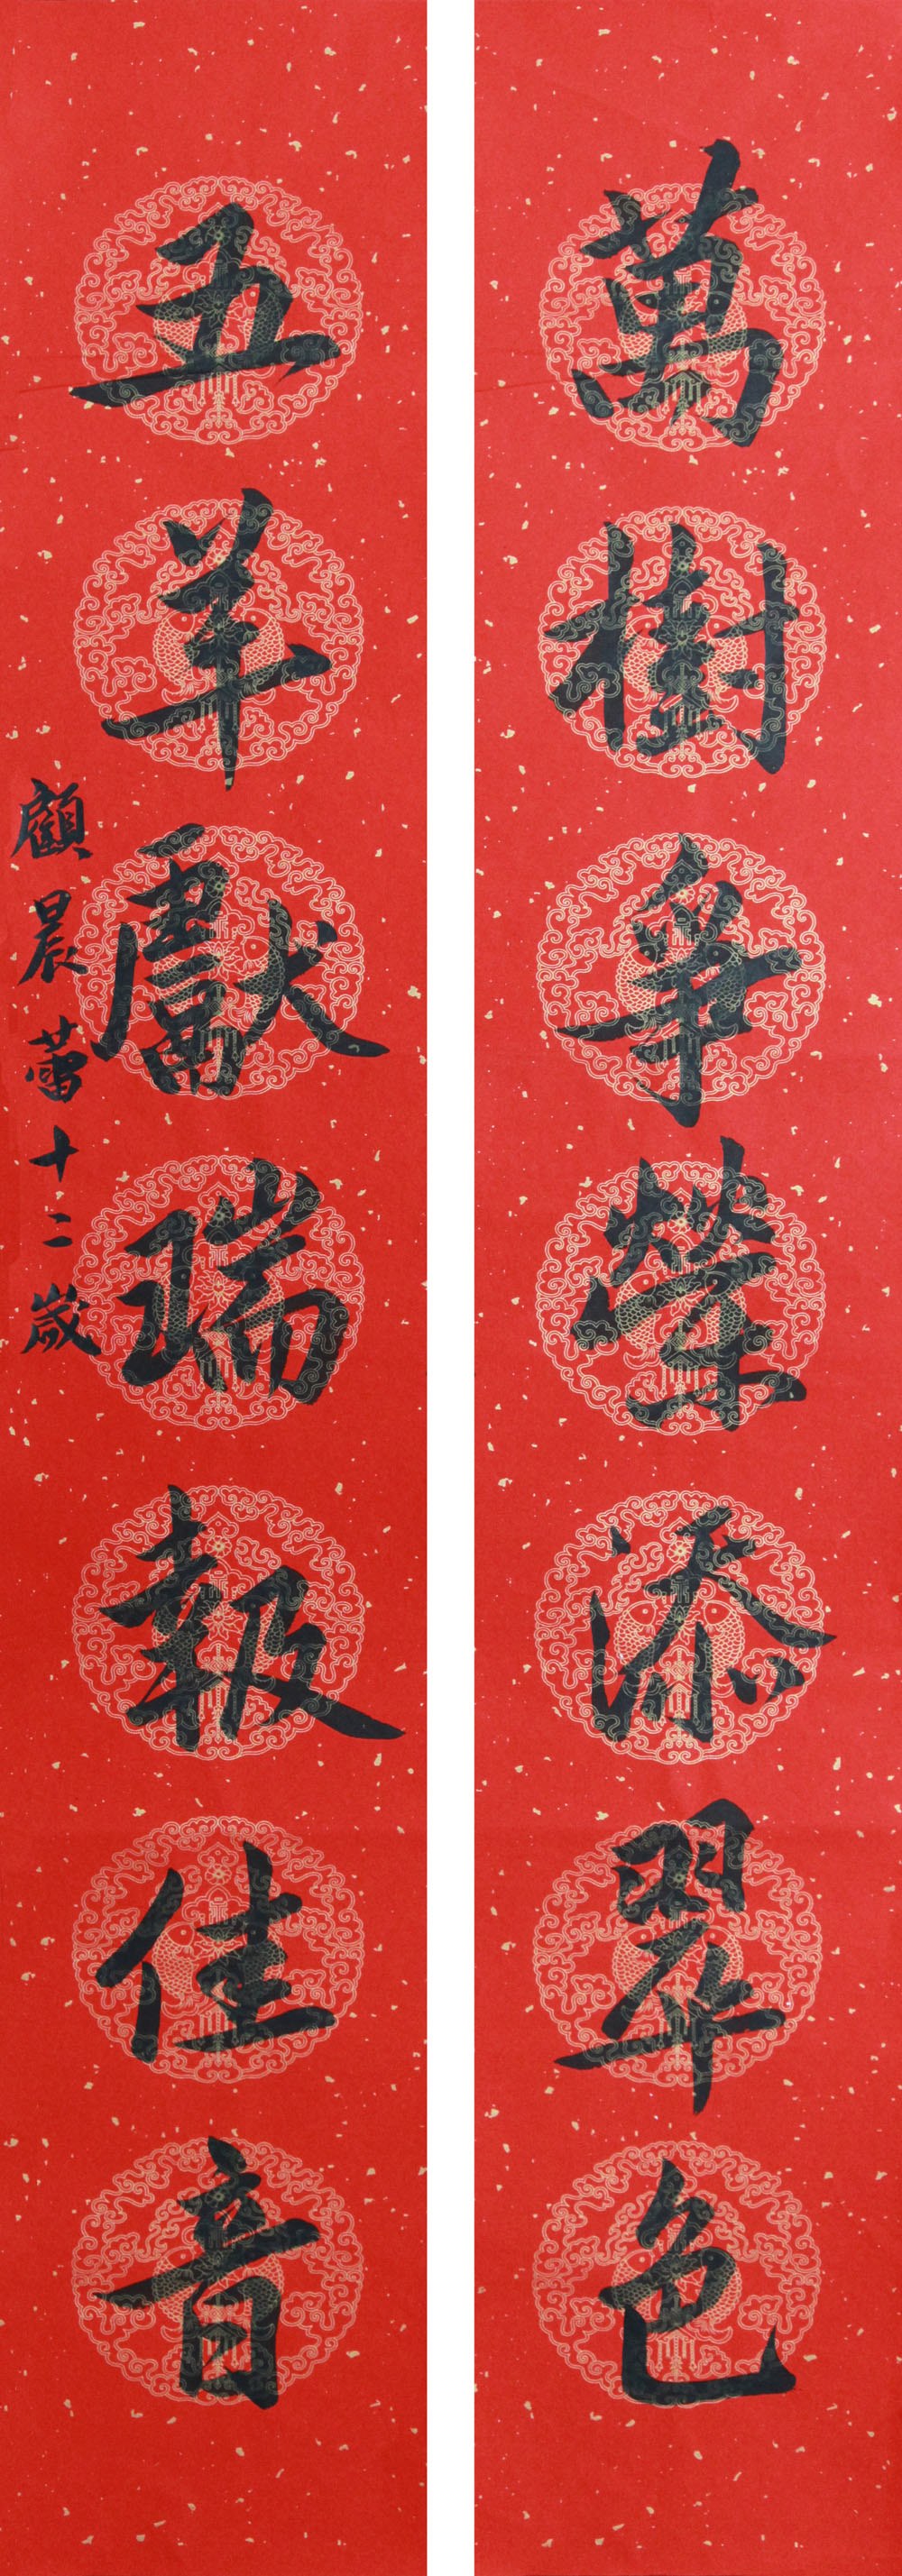 萬樹爭榮添翠色
五羊獻瑞報佳音
顧晨蕾十二歲